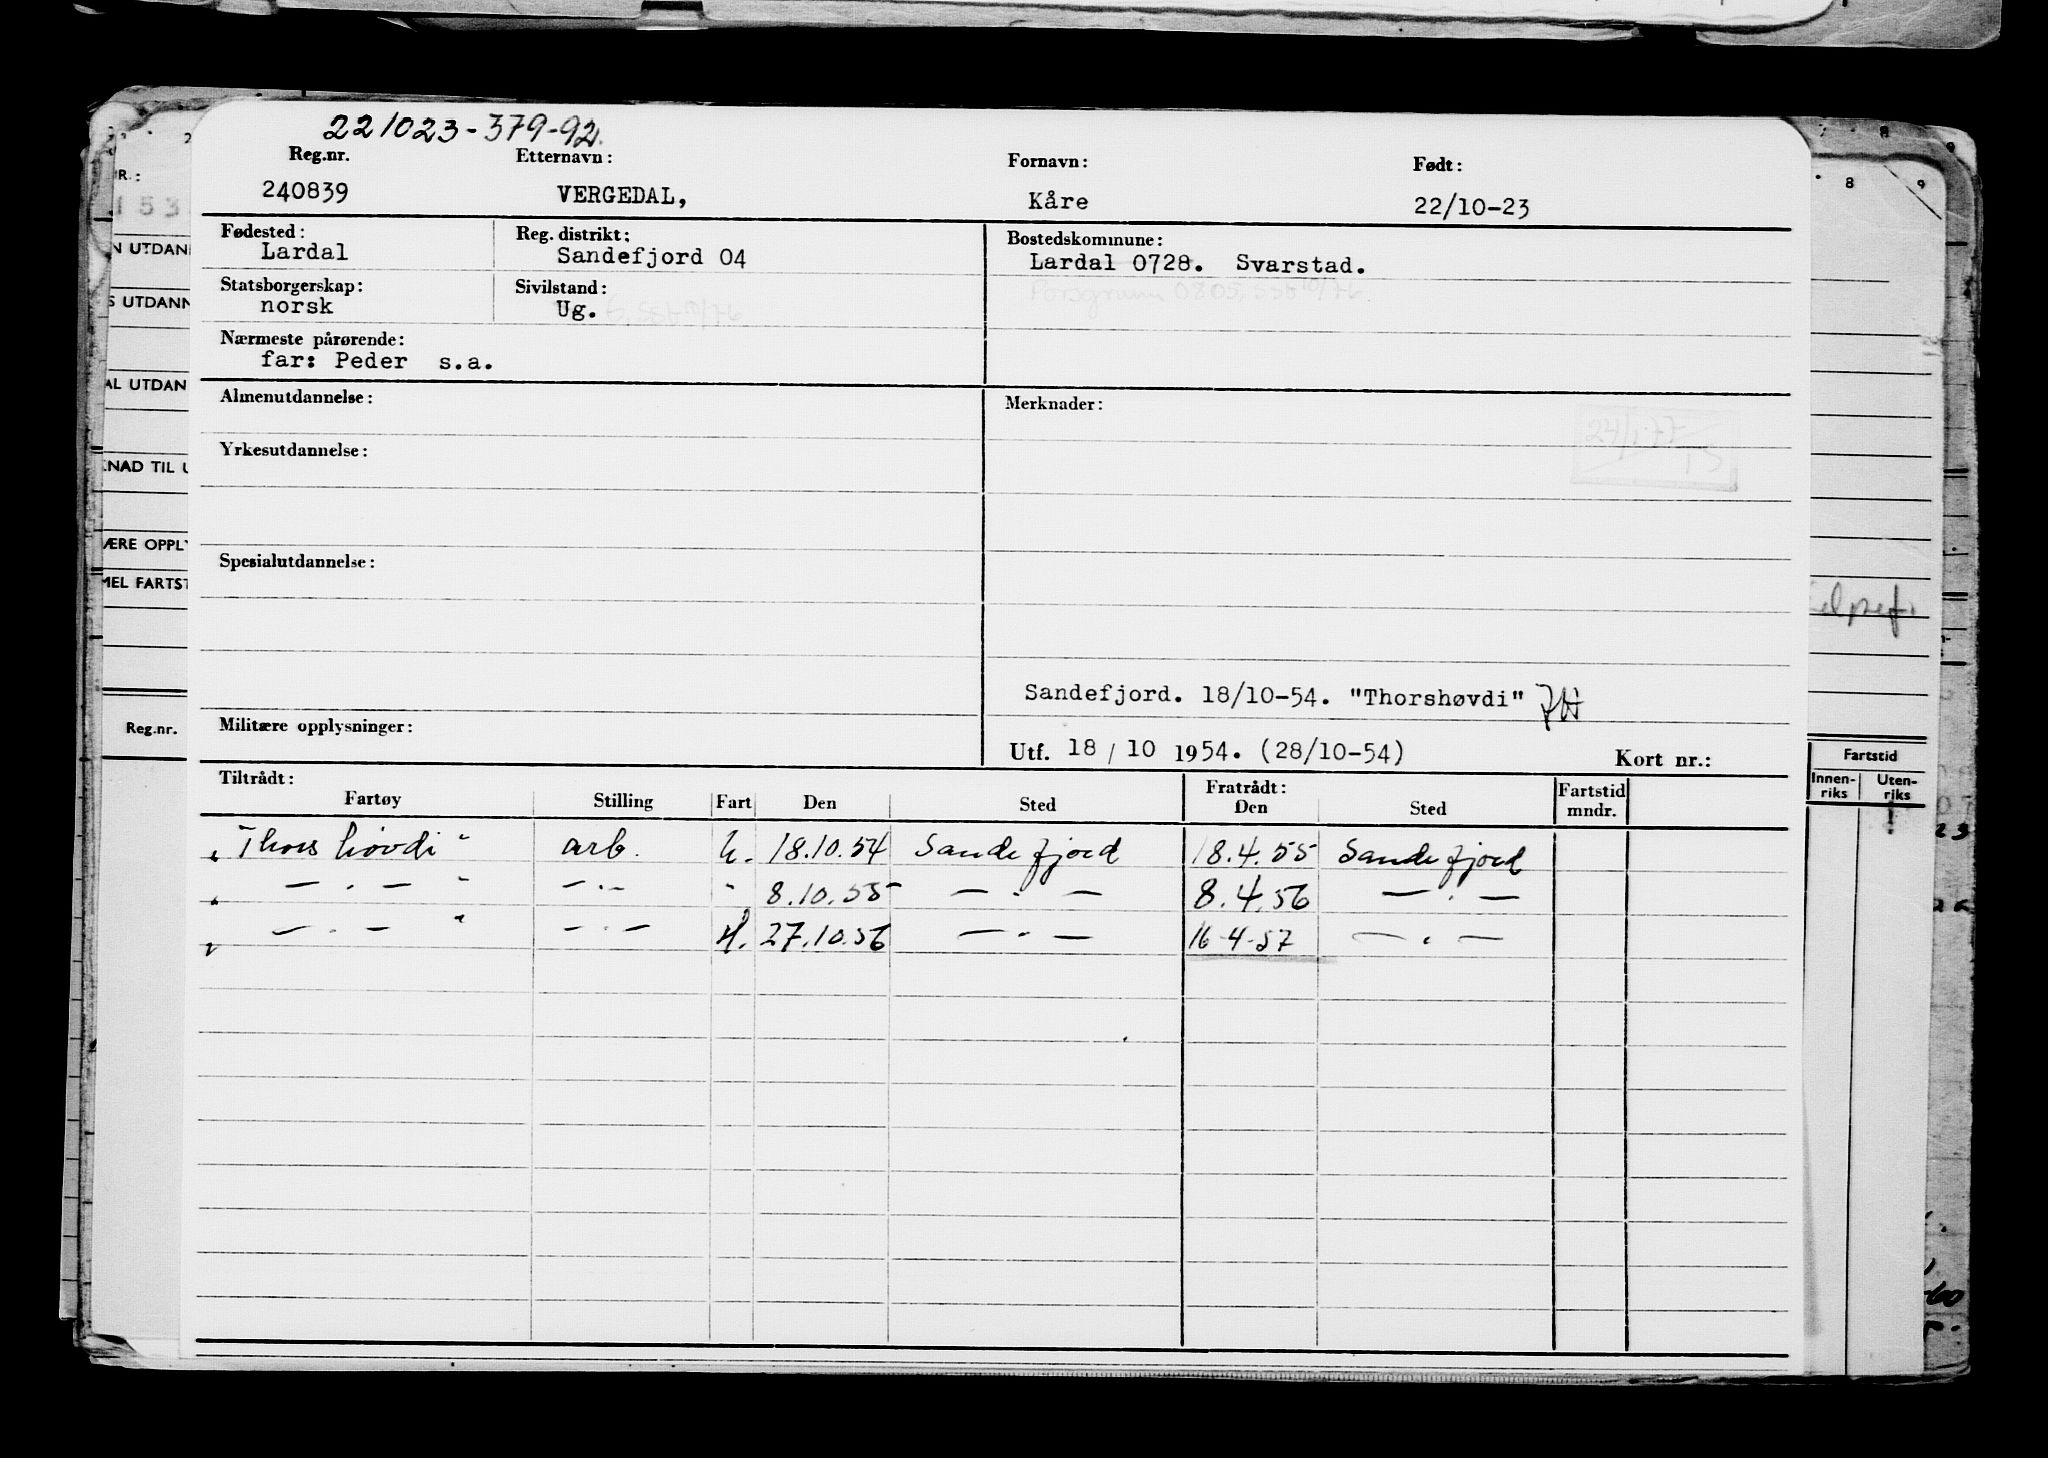 221023-379-92.
Reg.nr. Etternavn: Fornavn: Født:
240839 VERGEDAL, Kåre 22/10-23
Fødested: Reg. distrikt: Bostedskommune:
Lardal Sandefjord 04 Lardal 0728. Svarstad.
Statsborgerskap: Sivilstand: Porsgrunn 0805,
norsk Ug.
Nærmeste pårørende:
far: Peder s.a.
Almenutdannelse: Merknader:
24/1-77
Yrkesutdannelse:
Spesialutdannelse:
Sandefjord. 18/10-54. "Thorshøvdi"
Militære opplysninger:
Utf. 18 / 10 1954. (28/10-54) Kort nr.:
Tiltrådt: Fratrådt: Fartstid
Fartøy Stilling Fart Den Sted Den Sted mndr.
"Thorshøvdi" arb. h. 18.10.54 Sandefjord 18.4.55 Sandefjord
" — . — " — . — " 8.10.55 — . — 8.4.56 — . —
" — . — " — . — H. 27.10.56 — . — 16-4-57 — . —
NR.:
153
N UTDAN
S UTDANN
AL UTDAN
KNAD TIL U
ÆRE OPPLY
MEL FARTST
Reg.nr.
8 9
Fartstid
Innen-riks Uten-riks